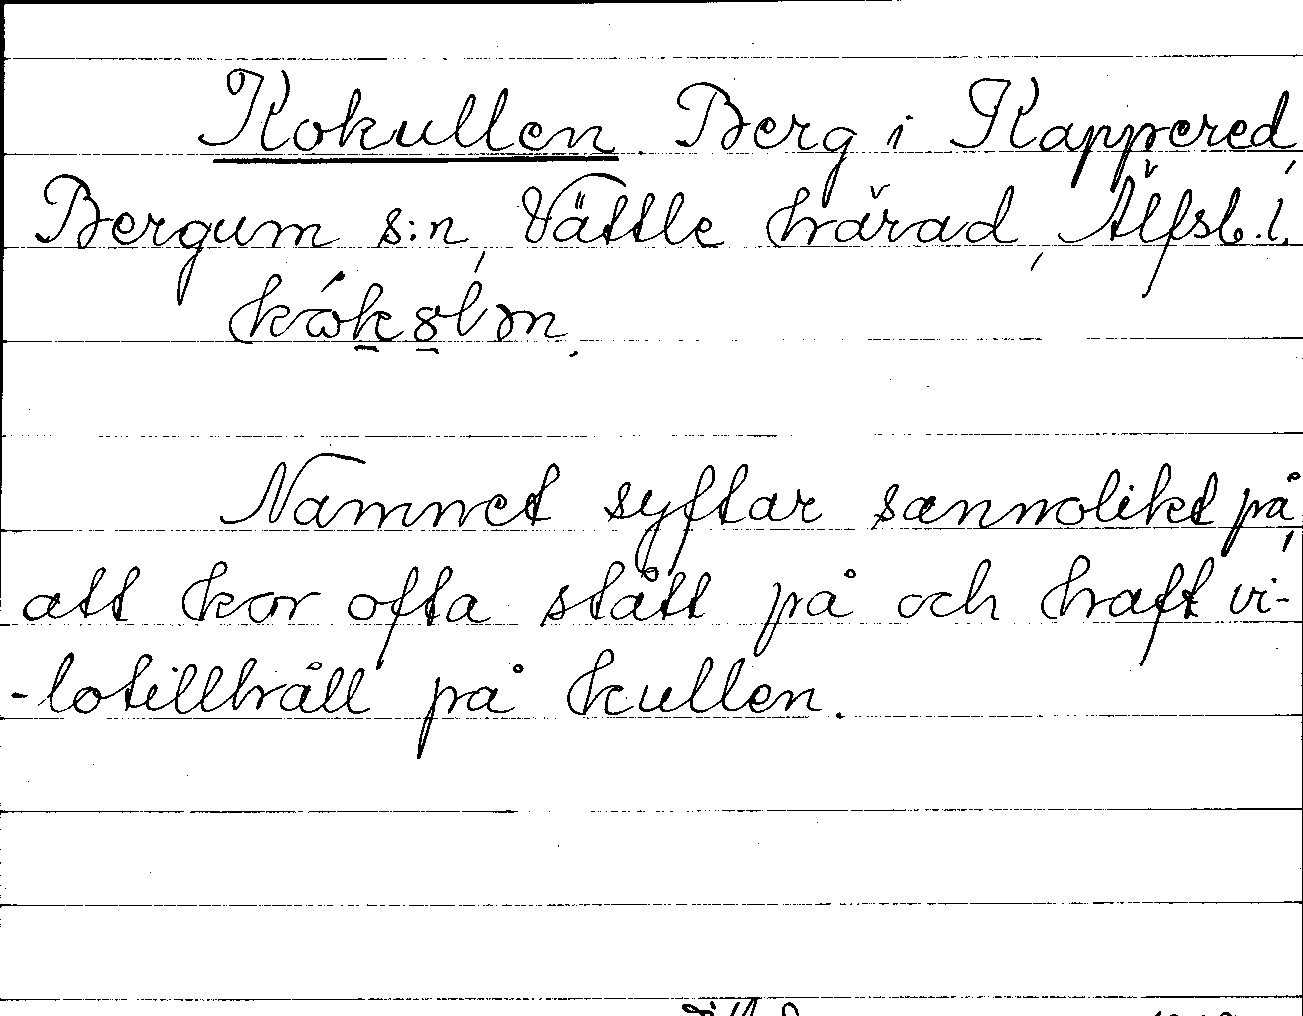 Kokullen. Berg i Kappered,
Bergum s:n, Vättle härad, Älfsb. l.
Namnet syftar sannolikt på,
att kor ofta stått på och haft vi-
-lotillhåll på kullen.